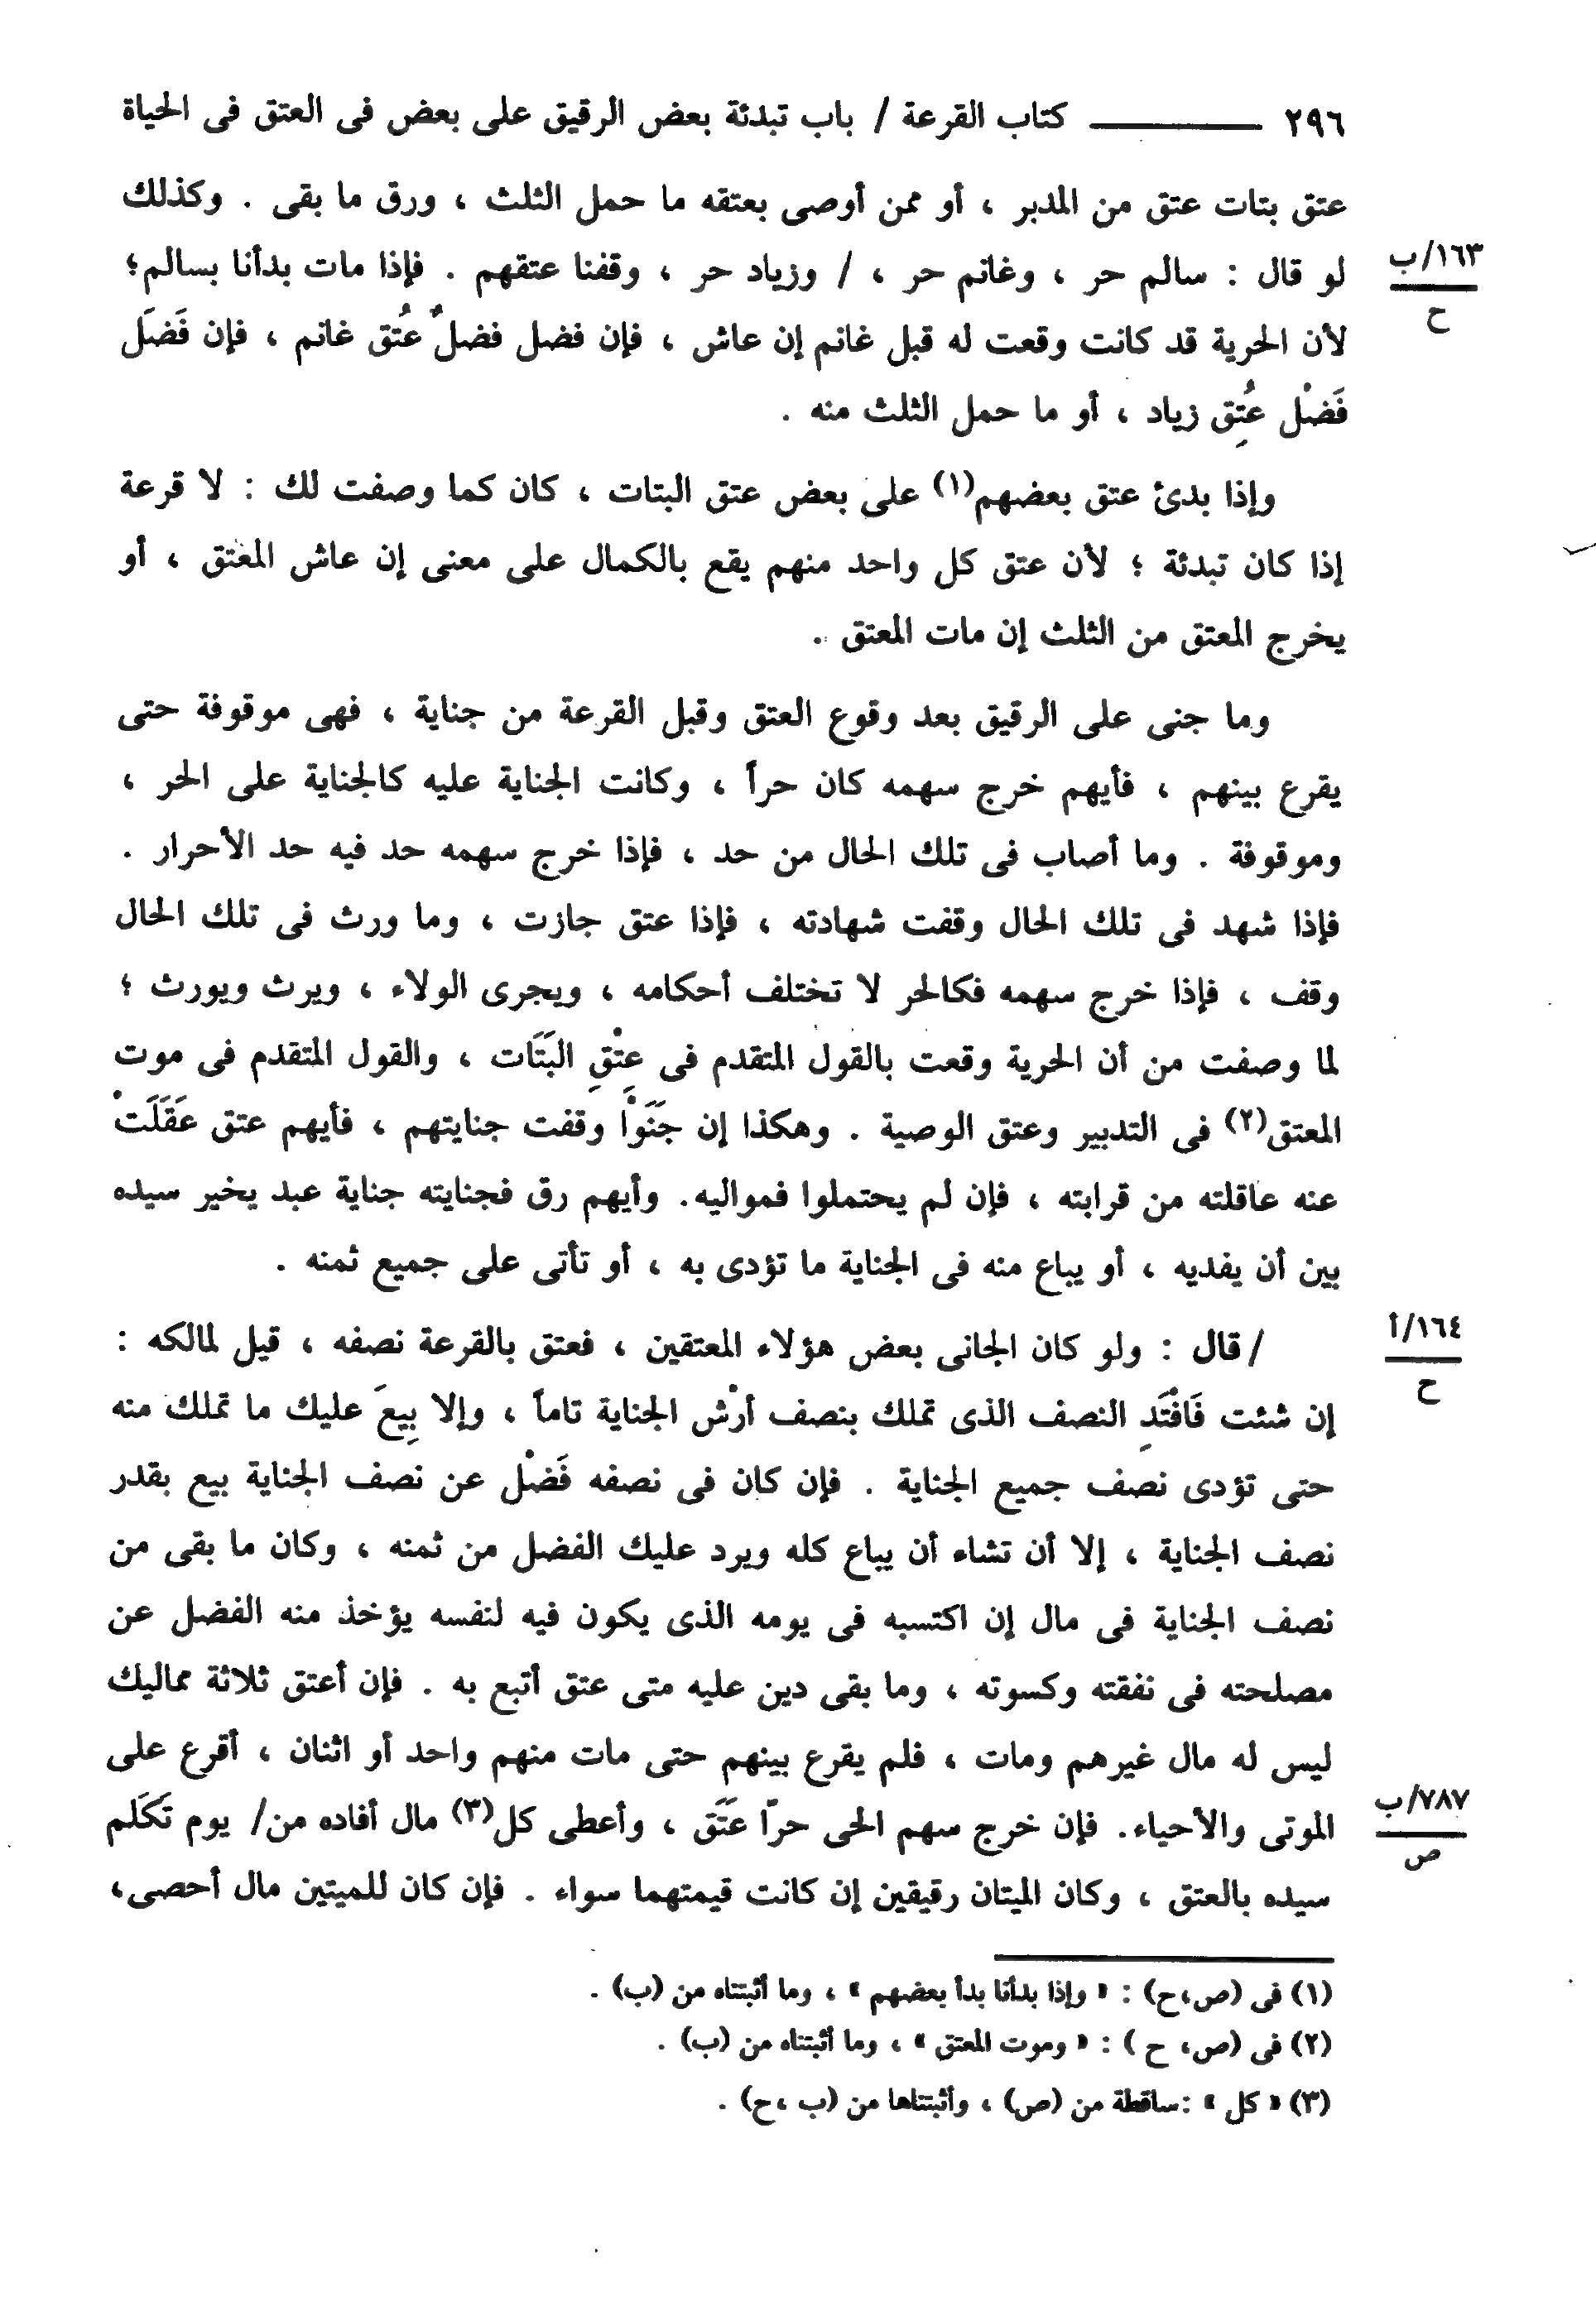 ٢٩٦ ــــــ كتاب القرعة / باب تبدئة بعض الرقيق على بعض فى العتق فى الحياة
عتق بتات عتق من المدبر ، أو ممن أوصى بعتقه ما حمل الثلث ، ورق ما بقى . وكذلك
لو قال : سالم حر ، وغانم حر ، / وزياد حر ، وقفنا عتقهم . فإذا مات بدأنا بسالم؛
١٦٣/ب
ح
لأن الحرية قد كانت وقعت له قبل غانم إن عاش ، فإن فضل فضلٌ عُتق غانم ، فإن فَضَل
فَضْل عُتِق زياد ، أو ما حمل الثلث منه .
وإذا بدئ عتق بعضهم(١) على بعض عتق البتات ، كان كما وصفت لك : لا قرعة
إذا كان تبدئة ؛ لأن عتق كل واحد منهم يقع بالكمال على معنى إن عاش المعتق ، أو
يخرج المعتق من الثلث إن مات المعتق .
وما جنى على الرقيق بعد وقوع العتق وقبل القرعة من جناية ، فهى موقوفة حتى
يقرع بينهم ، فأيهم خرج سهمه كان حراً ، وكانت الجناية عليه كالجناية على الحر ،
وموقوفة . وما أصاب فى تلك الحال من حد ، فإذا خرج سهمه حد فيه حد الأحرار .
فإذا شهد فى تلك الحال وقفت شهادته ، فإذا عتق جازت ، وما ورث فى تلك الحال
وقف ، فإذا خرج سهمه فكالحر لا تختلف أحكامه ، ويجرى الولاء ، ويرث ويورث ؛
لما وصفت من أن الحرية وقعت بالقول المتقدم فى عِتْقِ البَتَات ، والقول المتقدم فى موت
المعتق(٢) فى التدبير وعتق الوصية . وهكذا إن جَنَوْا وقفت جنايتهم ، فأيهم عتق عَقَلَتْ
عنه عاقلته من قرابته ، فإن لم يحتملوا فمواليه. وأيهم رق فجنايته جناية عبد يخير سيده
بين أن يفديه ، أو يباع منه فى الجناية ما تؤدى به ، أو تأتى على جميع ثمنه .
/ قال : ولو كان الجانى بعض هؤلاء المعتقين ، فعتق بالقرعة نصفه ، قيل لمالكه :
١٦٤/أ
ح
إن شئت فَافْتَدِ النصف الذى تملك بنصف أرْش الجناية تاماً ، وإلا بِيعَ عليك ما تملك منه
حتى تؤدى نصف جميع الجناية . فإن كان فى نصفه فَضْل عن نصف الجناية بيع بقدر
نصف الجناية ، إلا أن تشاء أن يباع كله ويرد عليك الفضل من ثمنه ، وكان ما بقى من
نصف الجناية فى مال إن اكتسبه فى يومه الذى يكون فيه لنفسه يؤخذ منه الفضل عن
مصلحته فى نفقته وكسوته ، وما بقى دين عليه متى عتق أتبع به . فإن أعتق ثلاثة مماليك
ليس له مال غيرهم ومات ، فلم يقرع بينهم حتى مات منهم واحد أو اثنان ، أقرع على
الموتى والأحياء. فإن خرج سهم الحى حرّا عَتَق ، وأعطى كل(٣) مال أفاده من/ يوم تَكَلم
٧٨٧/ب
ص
سيده بالعتق ، وكان الميتان رقيقين إن كانت قيمتهما سواء . فإن كان للميتين مال أحصى،
(١) فى (ص،ح) : « وإذا بدأنا بدأ بعضهم » ، وما أثبتناه من (ب) .
(٢) فى (ص، ح ) : « وموت المعتق » ، وما أثبتناه من (ب) .
(٣) « كل » :ساقطة من (ص) ، وأثبتناها من (ب ،ح) .